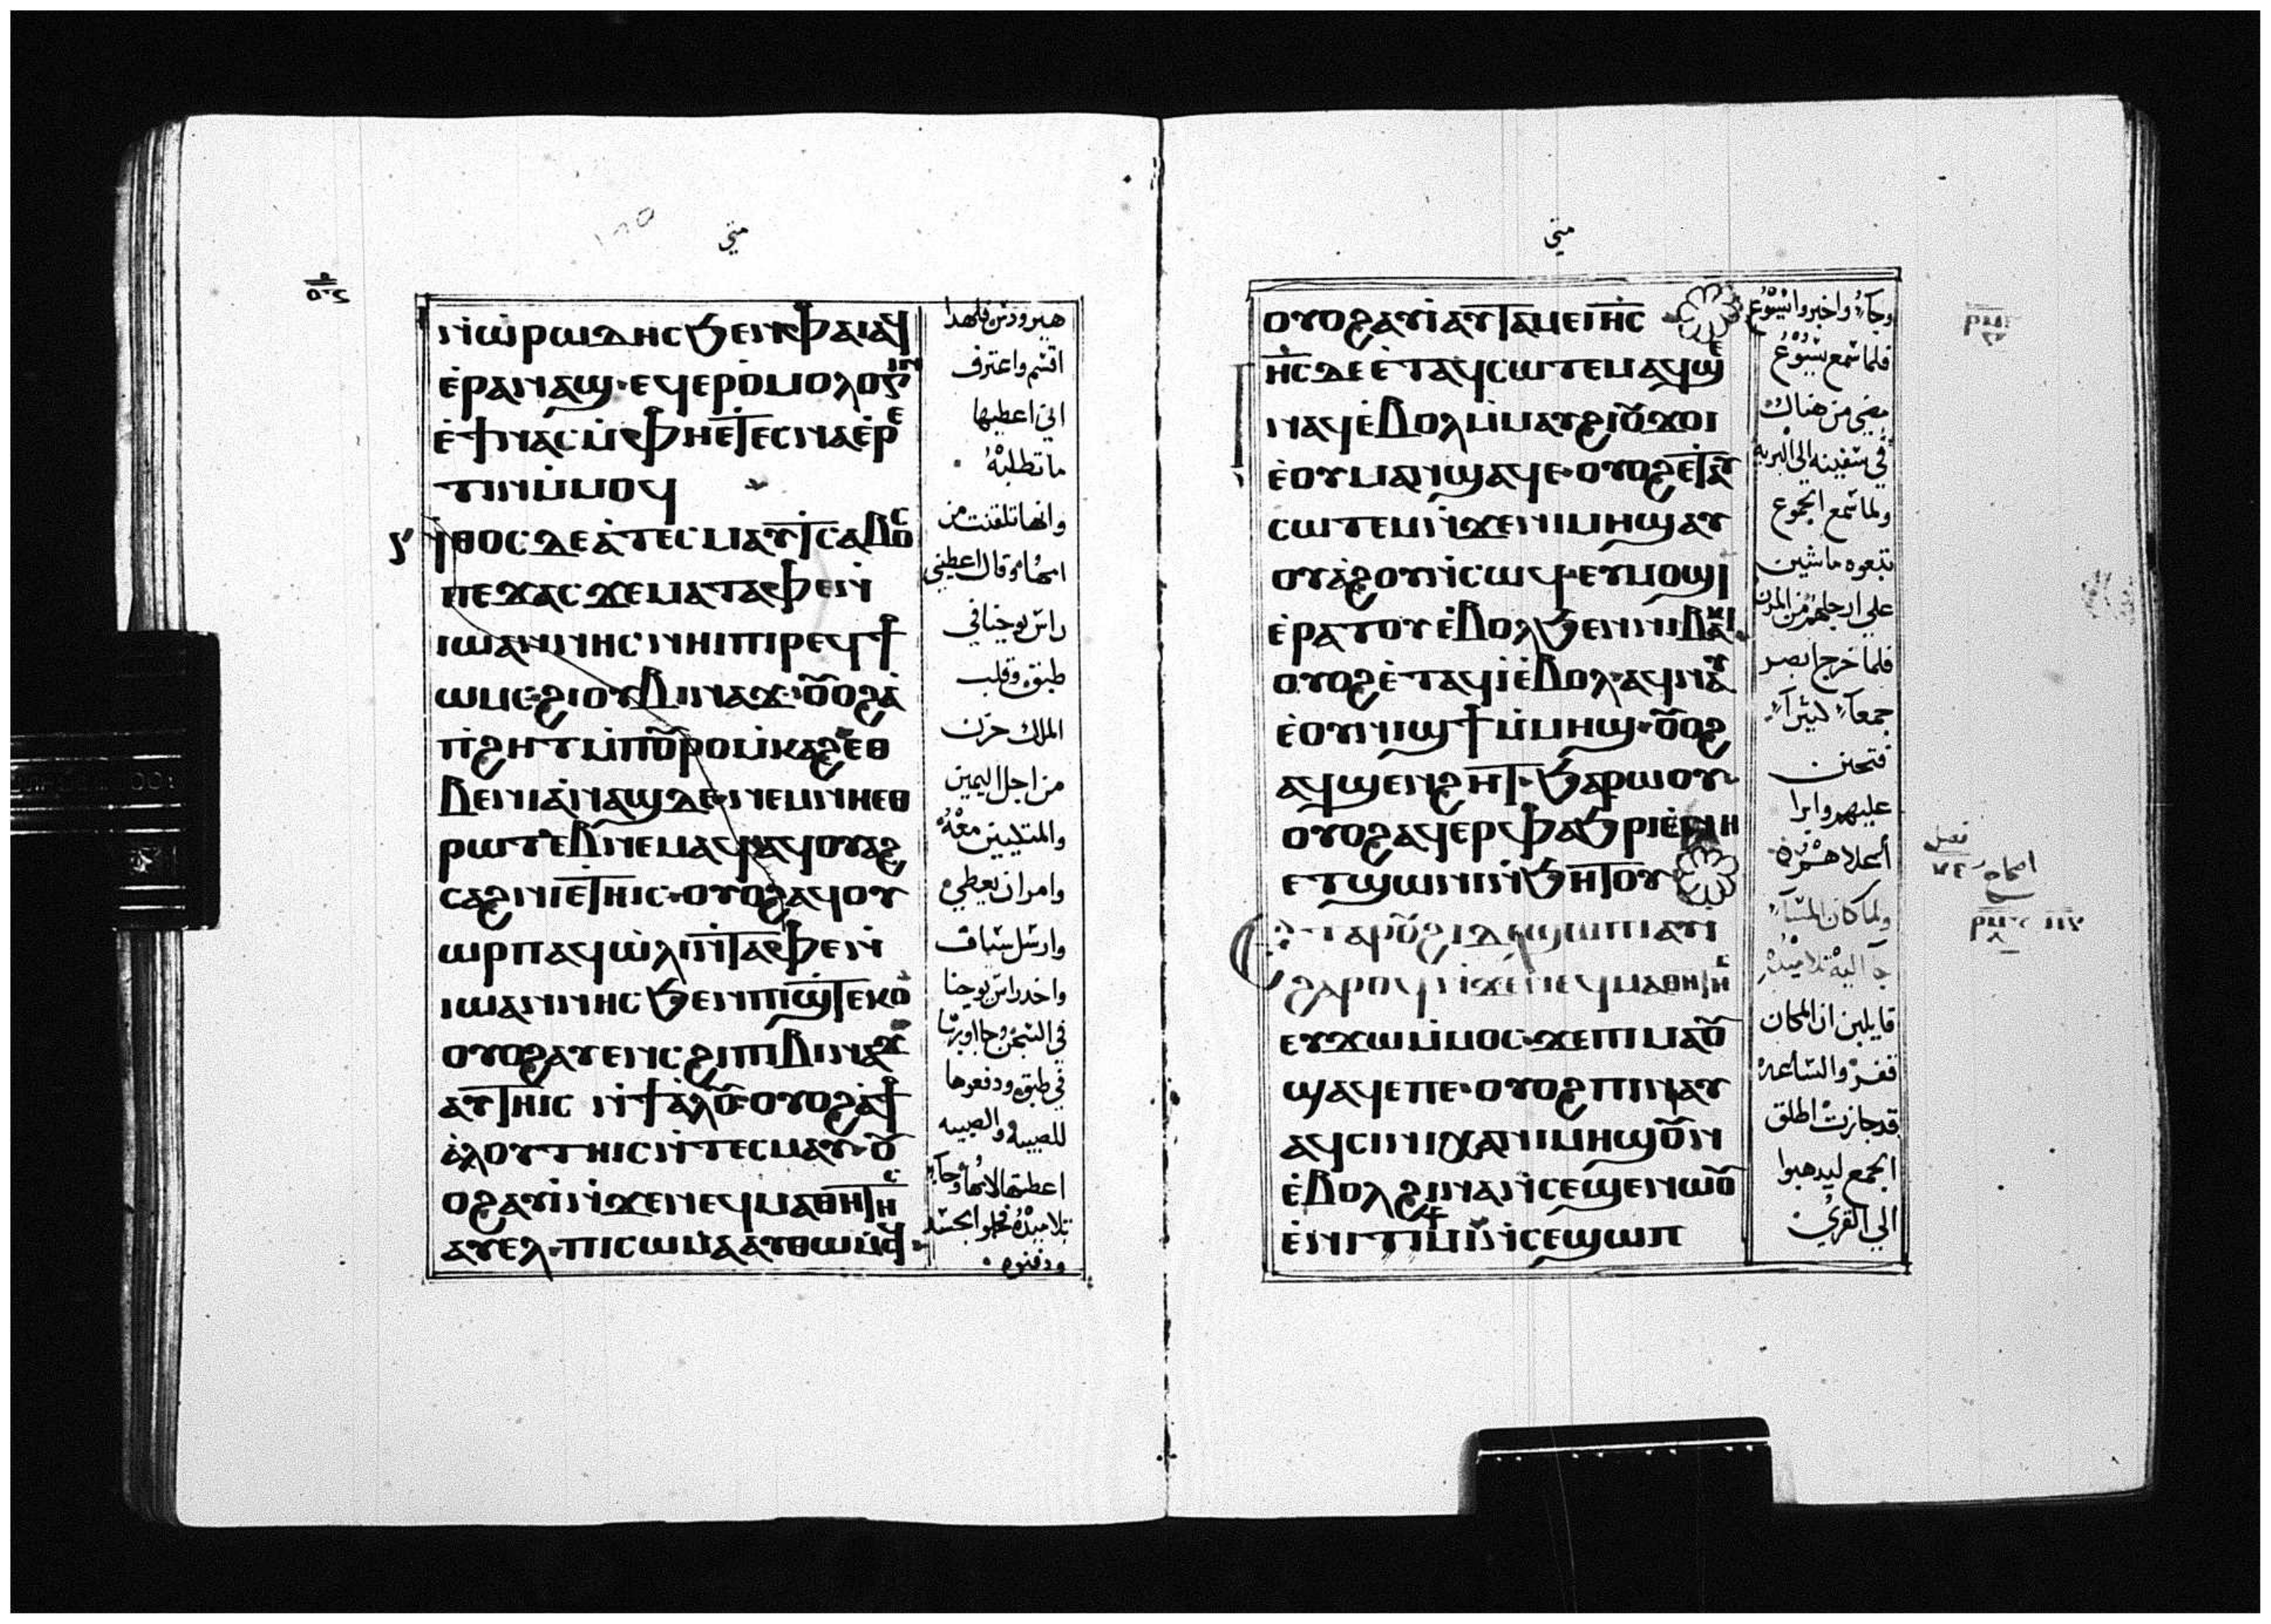 متي
ⲛ̀ⲏⲣⲱⲇⲏⲥ ϧⲉⲛⲫⲁⲓ ⲁϥ
ⲉ̀ⲣⲁⲛⲁϣ · ⲉϥⲉⲣⲟ̀ⲙⲟⲗⲟⲅⲓⲛ
ⲉ̀ϯⲛⲁⲥ ⲙ̀ⲫⲏ ⲉⲧⲉⲥⲛⲁⲉ̀ⲣⲉ
ⲧⲓⲛ ⲙ̀ⲙⲟϥ
ⲛ̀ⲑⲟⲥ ⲇⲉ ⲁ̀ ⲧⲉⲥⲙⲁⲩ ⲧⲥⲁⲃⲟⲥ
ⲡⲉϫⲁⲥ ϫⲉ ⲙⲁ ⲧⲁⲫⲉ ⲛ̀
ⲓⲱⲁⲛⲛⲏⲥ ⲛⲏⲓ ⲡⲓⲣⲉϥϯ
ⲱⲙⲥ · ϩⲓ ⲟⲩⲃⲓⲛⲁϫ · ⲟⲩⲟϩ ⲁ̀
ⲡ̀ϩⲏⲧ ⲙ̀ⲡⲟⲩⲣⲟ ⲙ̀ⲕⲁϩ ⲉⲑ
ⲃⲉ ⲛⲓⲁ̀ⲛⲁϣ ⲇⲉ · ⲛⲉⲙ ⲛⲏⲉⲑ
ⲣⲱⲧⲉⲃ ⲛⲉⲙⲁϥ ⲁϥⲟⲩⲁϩ
ⲥⲁϩⲛⲓ ⲉ̀ⲧⲏⲓⲥ · ⲟⲩⲟϩ ⲁϥⲟⲩ
ⲱⲣⲡ ⲁϥⲱ̀ⲗⲓ ⲛ̀ⲧⲁⲫⲉ ⲛ̀
ⲓⲱⲁⲛⲛⲏⲥ ϧⲉⲛ ⲡⲓϣⲧⲉⲕⲟ
ⲟⲩⲟϩ ⲁⲩⲉⲛⲥ ϩⲓ ⲡⲓⲃⲓⲛⲁϫ
ⲁⲩⲧⲏⲓⲥ ⲛ̀ϯⲁ̀ⲗⲟⲩ · ⲟⲩⲟϩ ⲁ̀ϯ
ⲁ̀ⲗⲟⲩ ⲧⲏⲓⲥ ⲛ̀ⲧⲉⲥⲙⲁⲩ · ⲟⲩ
ⲟϩ ⲁⲩⲓ̀ ⲛ̀ϫⲉ ⲛⲉϥⲙⲁⲑⲏⲧⲏⲥ
ⲁⲩⲉⲗ · ⲡⲓⲥⲱⲙⲁ ⲁⲩⲑⲱⲙⲥϥ ·
هيرودس فلهدا
اقسم واعترف
اني اعطيها
ما تطلبه
وانها تلقنت من
امها وقالت اعطيني
راس يوحنا في
طبق وقلب
الملك حزن
من اجل اليمين
والمتكيين معه
وامر ان يعطيه
وارسل سياف
واخد راس يوحنا
في السجن وجا وبها
في طبق ودفعوها
للصبيه والصبيه
اعطتها لامها وجا
تلاميده فحملوا الجسد
ودفنوه ·
متي
ⲟⲩⲟϩ ⲁⲩⲓ̀ ⲁⲩⲧⲁⲙⲉ ⲓⲏⲥ
ⲓⲏⲥ ⲇⲉ ⲉ̀ⲧⲁϥⲥⲱⲧⲉⲙ ⲁϥϣⲉ
ⲛⲁϥ ⲉ̀ⲃⲟⲗ ⲙ̀ⲙⲁⲩ ϩⲓ ⲟⲩϫⲟⲓ
ⲉ̀ⲟⲩⲙⲁ ⲛ̀ϣⲁϥⲉ · ⲟⲩⲟϩ ⲉ̀ⲧⲁⲩ
ⲥⲱⲧⲉⲙ ⲛ̀ϫⲉ ⲛⲓⲙⲏϣ ⲁⲩ
ⲟⲩⲁ̀ϩⲟⲩ ⲛ̀ⲥⲱϥ · ⲉⲩⲙⲟϣⲓ
ⲉ̀ⲣⲁⲧⲟⲩ ⲉ̀ⲃⲟⲗ ϧⲉⲛ ⲛⲓⲃⲁⲕⲓ ·
ⲟⲩⲟϩ ⲉ̀ⲧⲁϥⲓ̀ ⲉ̀ⲃⲟⲗ · ⲁϥⲛⲁⲩ
ⲉ̀ⲟⲩⲛⲓϣϯ ⲙ̀ⲙⲏϣ · ⲟⲩⲟϩ
ⲁϥϣⲉⲛϩⲏⲧ · ϧⲁⲣⲱⲟⲩ
ⲟⲩⲟϩ ⲁϥⲉⲣⲫⲁϧⲣⲓ ⲉ̀ⲛⲏ
ⲉⲧϣⲱⲛⲓ ⲛ̀ϧⲏⲧⲟⲩ
ⲉ̀ⲧⲁ ⲣⲟⲩϩⲓ ⲇⲉ ϣⲱⲡⲓ ⲁⲩⲓ̀
ϩⲁⲣⲟϥ ⲛ̀ϫⲉ ⲛⲉϥⲙⲁⲑⲏⲧⲏⲥ
ⲉⲩϫⲱ ⲙ̀ⲙⲟⲥ · ϫⲉ ⲡⲓⲙⲁ ⲟⲩ
ϣⲁϥⲉ ⲡⲉ · ⲟⲩⲟϩ ⲡⲓⲛⲁⲩ
ⲁϥⲥⲓⲛⲓ ⲭⲁ ⲛⲓⲙⲏϣ ⲟⲩⲛ
ⲉ̀ⲃⲟⲗ ϩⲓⲛⲁ ⲛ̀ⲥⲉϣⲉⲛⲱⲟⲩ
ⲉ̀ⲛⲓϯⲙⲓ ⲛ̀ⲥⲉϣⲱⲡ
وجآء واخبروا ايسوع
فلما سمع يسوع
مضي من هناك
في سفينه الي البريه
ولما سمع الجموع
تبعوه ماشيين
علي ارجلهم من المدن
فلما خرج ابصر
جمعآ كثيرآ
فتحنن
عليهم وابرا
أعلاهم
ولما كان المسآ
جآ اليه تلاميده
قايلين ان المكان
قفر والساعه
قد جازت اطلق
الجمع ليدهبوا
الي القري
فصل